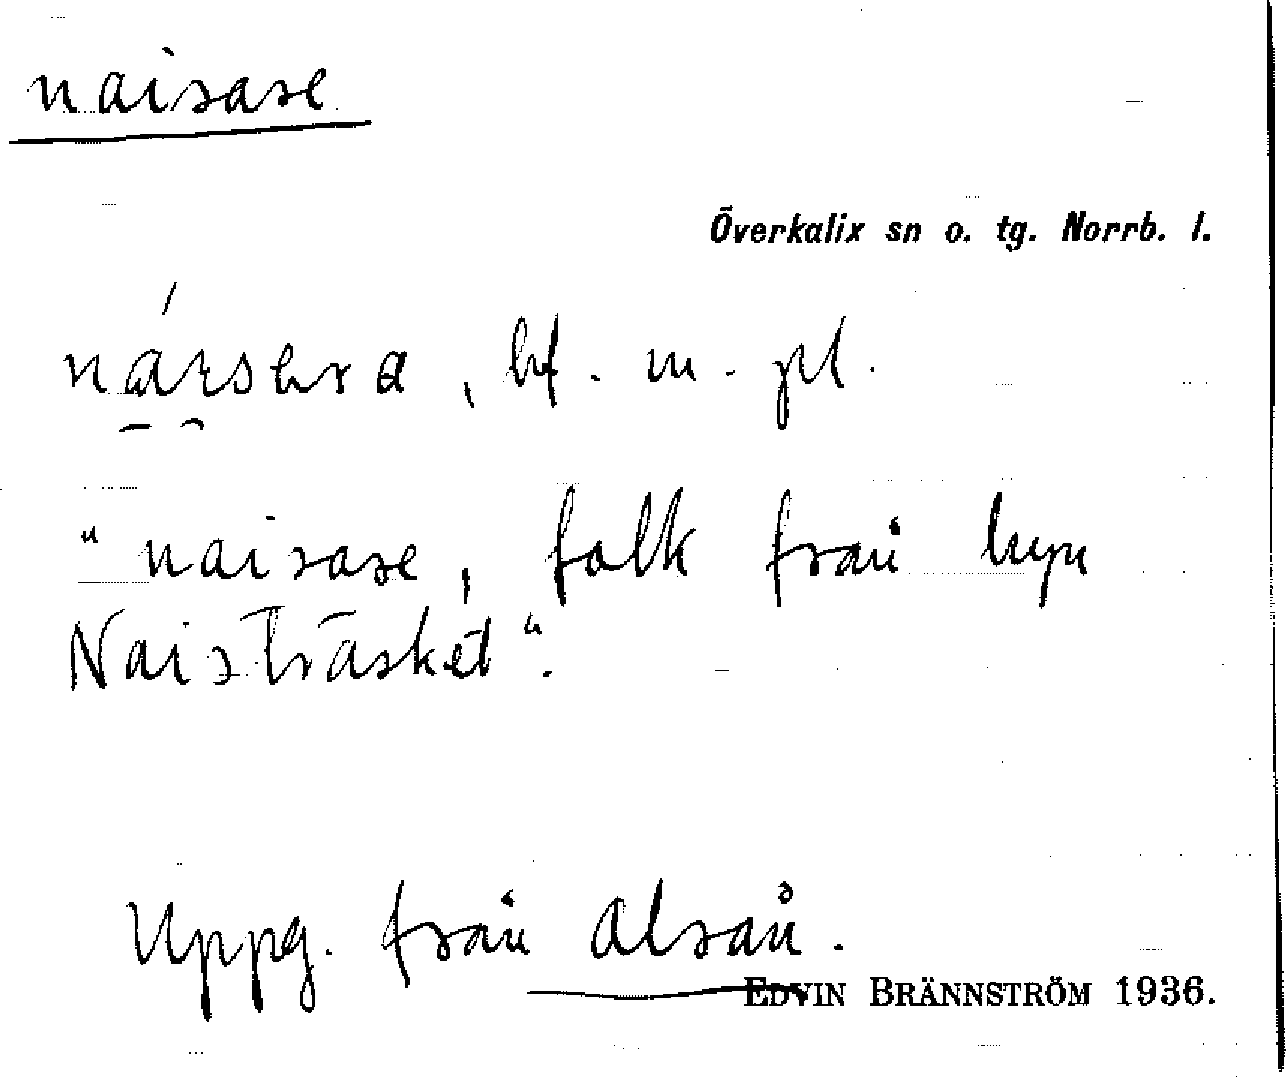 naisare
Överkalix sn o. tg. Norrb. l.
, bf. m. pl.
"naisare, folk från byn
Naisträsket".
Uppg. från Alsån.
EDVIN BRÄNNSTRÖM 1936.